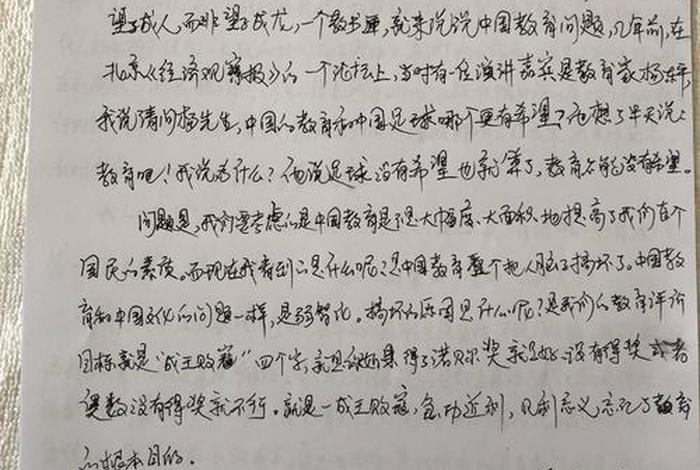 望子成人，而非望子成龙，一个教书匠，就来说说中国教育问题，几年前，在
北京《经济观察报》的一个论坛上，当时有一位演讲嘉宾是教育家杨东平，
我说请问杨先生，中国的教育和中国足球哪个更有希望？他想了半天说：
教育吧！我说为什么？他说足球没有希望也就算了，教育不能没有希望。
问题是，我们要考虑的是中国教育是不是大幅度、大面积地提高了我们在个
国民的素质。而现在我看到的是什么呢？是中国教育整个把人脑子搞坏了。中国教
育和中国文化的问题一样，是弱智化。搞坏的原因是什么呢？是我们的教育评价
目标就是“成王败寇”四个字，就是你如果得了诺贝尔奖就是好，没有得奖或者
奥数没有得奖就不行。就是一成王败寇，急功近利，见利忘义，忘记了教育
的根本目的。